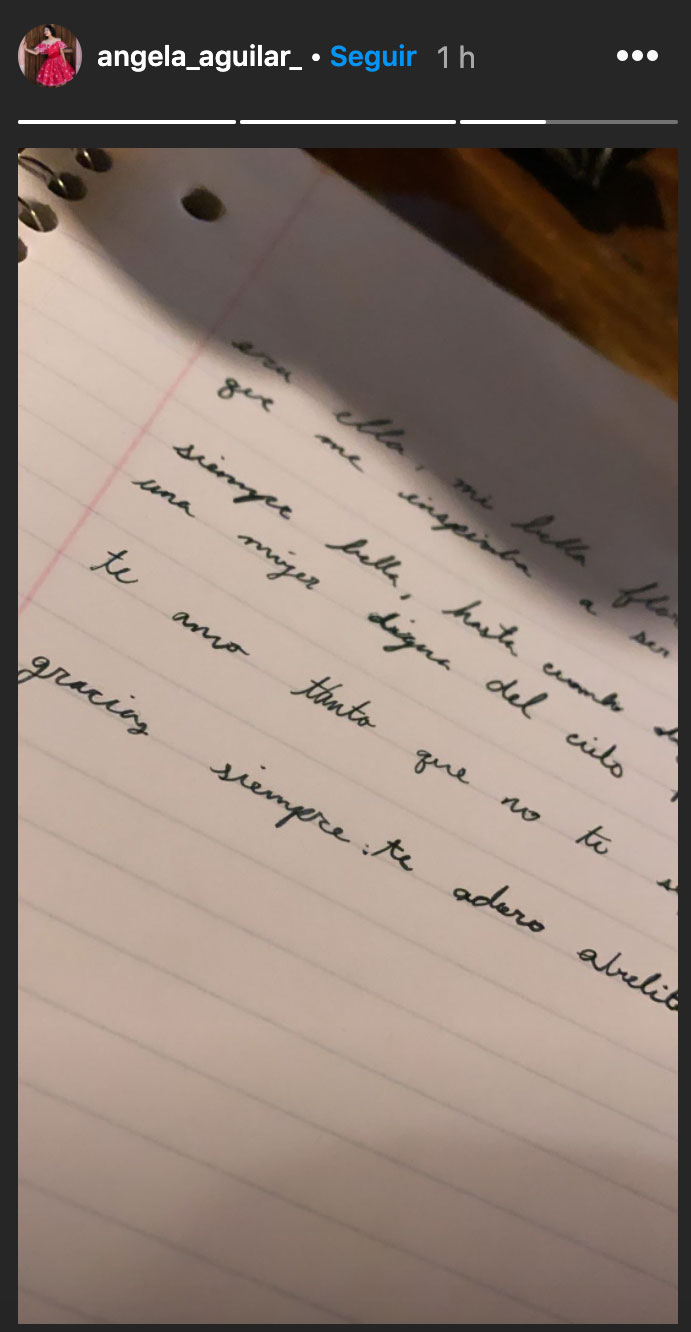 angela_aguilar_ • Seguir 1 h
era ella, mi bella flor
que me inspiraba a ser
siempre bella, hasta cuando
una mujer digna del cielo
te amo tanto que no te
gracias siempre. te adoro abelit